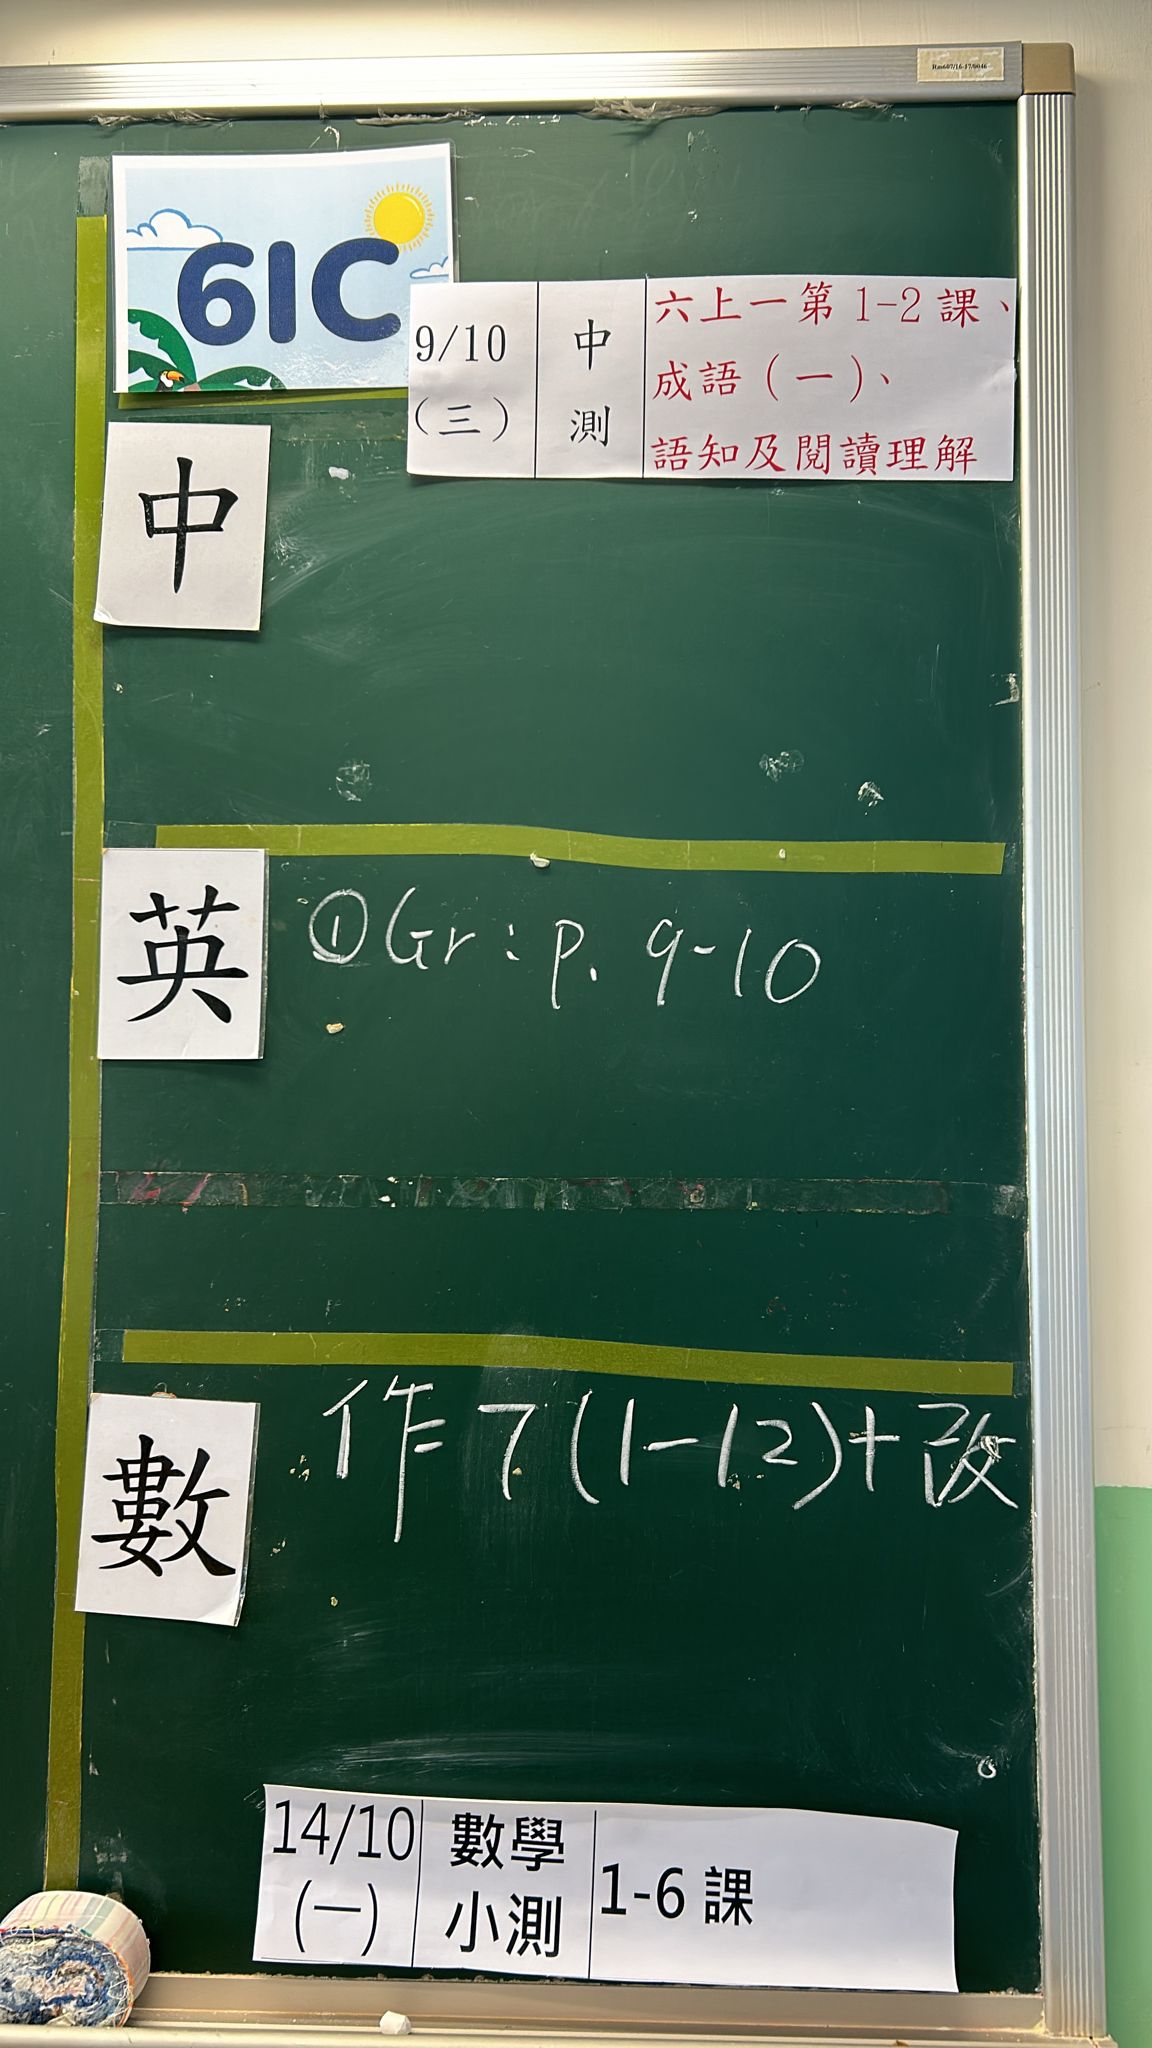 61C
9/10
(三)
中
測
六上一第 1-2 課、
成語 (一)、
語知及閱讀理解
中
英
① Gr : p. 9-10
數
作 7 (1-12) + 改
14/10
(一)
數學
小測
1-6 課